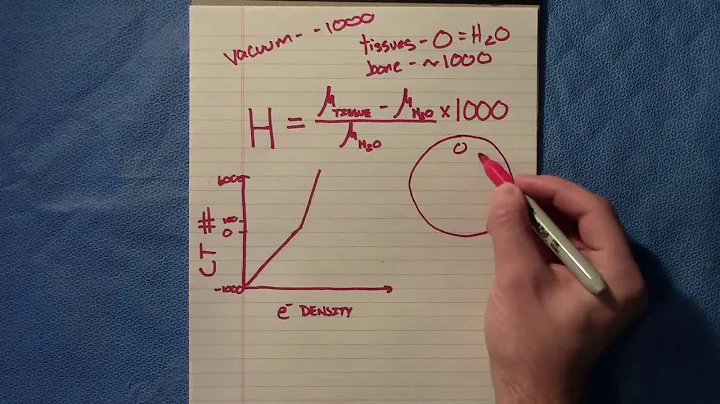 vacuum - -1000
tissues - 0 = H₂O
bone - ~1000
H = μTISSUE - μH₂O / μH₂O × 1000
0
CT #
100
0
-1000
e⁻ DENSITY